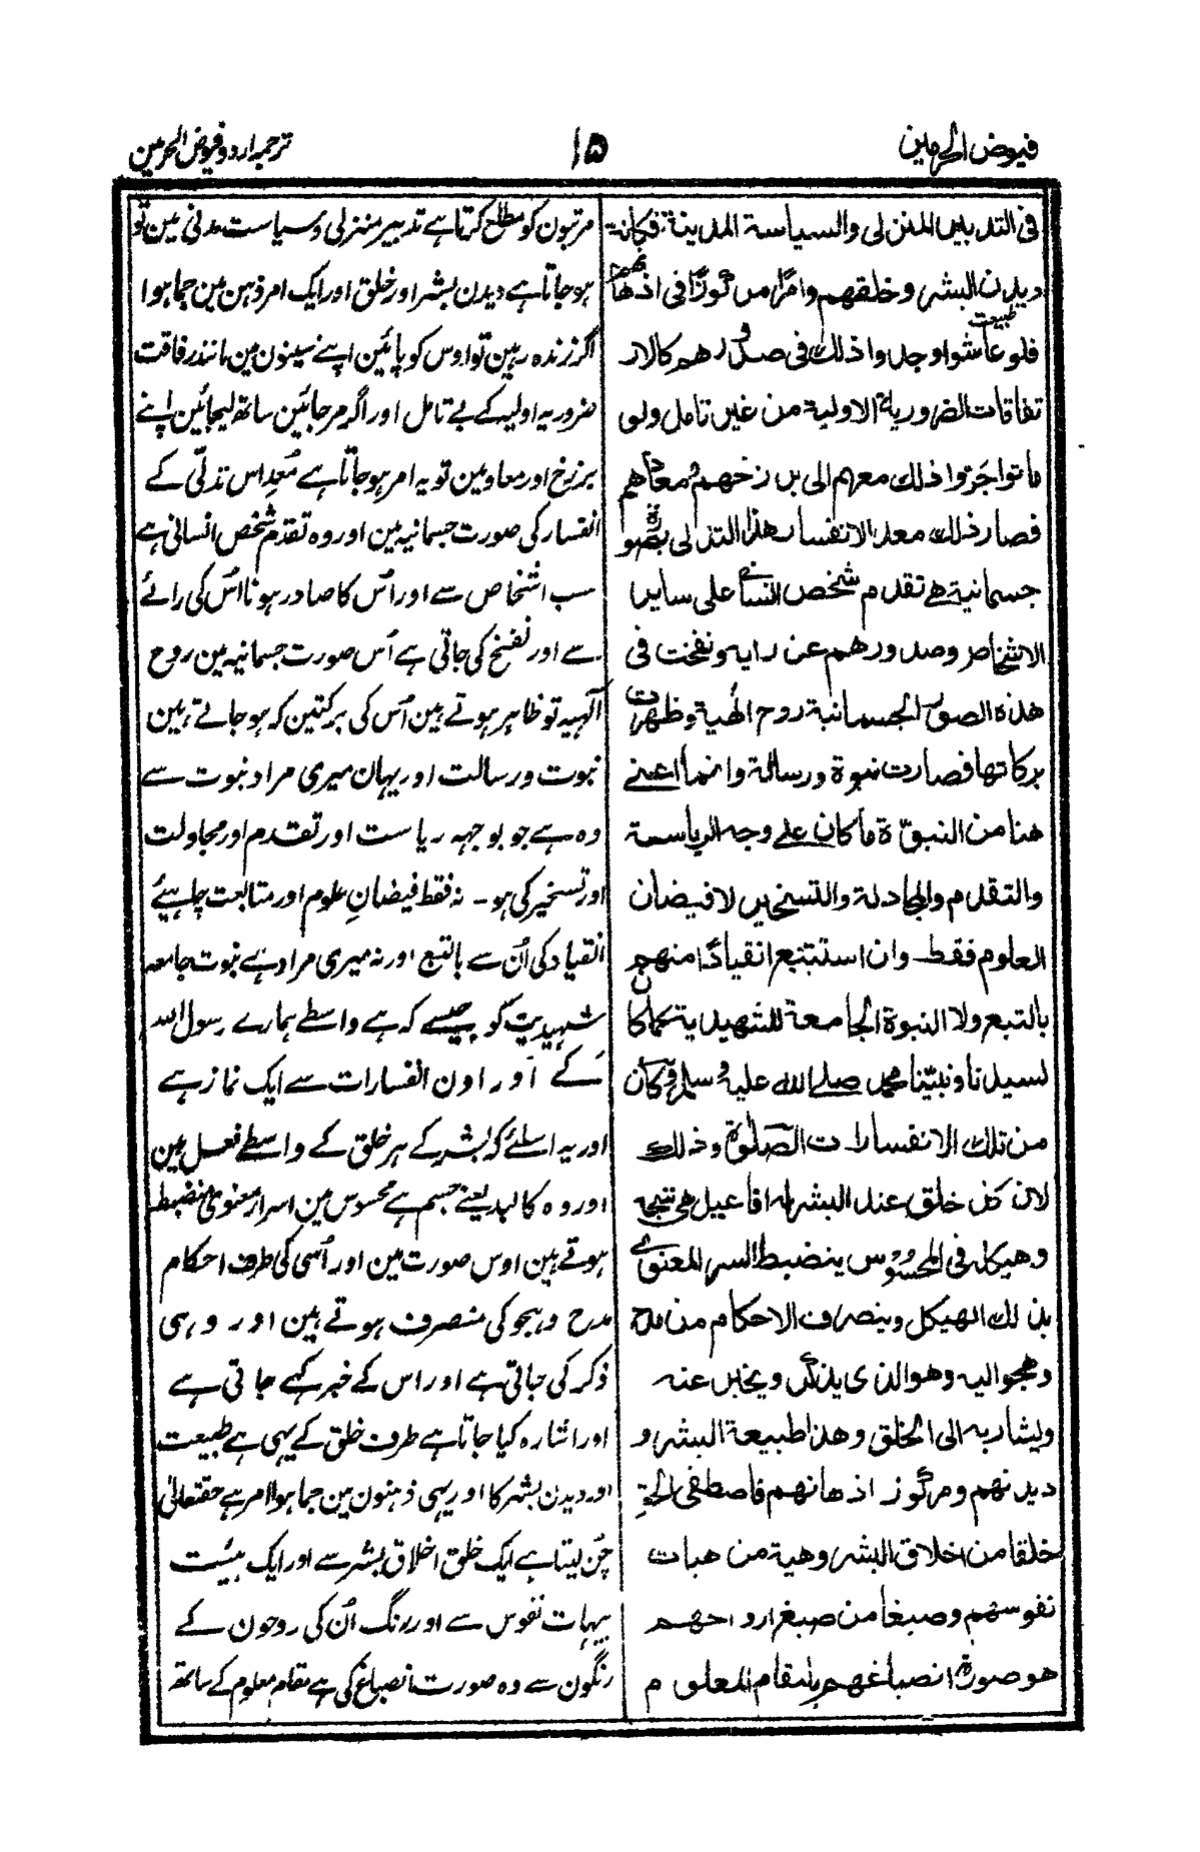 فیوض الحرمین
۱۵
ترجمہ اردو فیوض الحرمین
فی التدبیر المنزلی والسیاسة المدینة فکانه
دیدن البشر وخلقهم وامرًا مرکوزًا فی اذهانهم
طبیعت
فلو عاشوا وجدوا ذلك فی صدورهم کالار
تفاقات الضروریة الاولیة من غیر تامل ولو
ماتوا جَرّوا ذلك معهم الی برزخهم ومعادهم
فصار ذلك معد الانفسار هذا التدلی بصورة
جسمانیة هے تقدم شخص انسانے علی سایر
الاشخاص وصدورهم عن رایه ونفخت فی
هذه الصورة الجسمانیة روح الٰهیة وظهرت
برکاتها فصارت نبوة ورسالة وانما اعنے
هنا من النبوّة ما کان علے وجه الریاسة
والتقدم والمجادلة والتسخیر لا فیضان
العلوم فقط وان استتبع انقیادًا منهم
بالتبع ولا النبوة الجامعة للشهیدیة کما کان
لسیدنا ونبیّنا محمد صلے الله علیه وسلم وکان
من تلك الانفسارات الصّلوٰة وذلك
لان کل خلق عند البشر له افاعیل هی نتیجة
وهیکله فی المحسوس ینضبط السر المعنوے
بذلك الهیکل وینصرف الاحکام من مدح
وهجو الیه وهو الذی یذکر ویخبر عنه
ویشار به الی الخلق وهذا طبیعة البشر و
دیدنهم ومرکوز اذهانهم فاصطفی الحق
خلقا من اخلاق البشر وهیة من هیات
نفوسهم وصبغا من صبغ ارواحهم
هو صورة انصباغهم بالمقام المعلوم
مرتبون کو مطلع کرتا ہے تدبیر منزلی و سیاست مدنی مین تو
ہو جاتا ہے دیدن بشر اور خلق اور ایک امر ذہن مین جما ہوا
اگر زندہ رہین تو اوس کو پائین اپنے سینون مین مانند رفاقت
ضروریہ اولیہ کے بے تامل اور اگر مر جائین ساتھ لیجائین اپنے
برزخ اور معاد مین تو یہ امر ہو جاتا ہے مُعِد اس تدلّی کے
انفسار کی صورت جسمانیہ مین اور وہ تقدم شخص انسانی ہے
سب اشخاص سے اور اُس کا صادر ہونا اُس کی رائے
سے اور نفخ کی جاتی ہے اُس صورت جسمانیہ مین روح
آلہیہ تو ظاہر ہوتے ہین اُس کی برکتین کہ ہو جاتے ہین
نبوت و رسالت اور یہان میری مراد نبوت سے
وہ ہے جو بوجہہ ریاست اور تقدم اور مجاولت
اور تسخیر کی ہو ۔ نہ فقط فیضانِ علوم اور متابعت چاہیئے
انقیاد کی اُن سے بالتبع اور نہ میری مراد ہے نبوت جامعہ
شہیدیت کو جیسے کہ ہے واسطے ہمارے رسول اللہ
کے اور اون انفسارات سے ایک نماز ہے
اور یہ اسلئے کہ بشر کے ہر خلق کے واسطے فعل ہین
اور وہ کالبد یعنے جسم ہے محسوس مین اسرار معنوی منضبط
ہوتے ہین اوس صورت مین اور اُسی کی طرف احکام
مدح و ہجو کی منصرف ہوتے ہین اور وہی
ذکر کی جاتی ہے اور اس کے خبر کہے جاتی ہے
اور اشارہ کیا جاتا ہے طرف خلق کے یہی ہے طبیعت
اور دیدن بشر کا اور یہی ذہنون مین جما ہوا امر ہے حقتعالیٰ
چُن لیتا ہے ایک خلق اخلاق بشر سے اور ایک ہیئت
ہیات نفوس سے اور رنگ اُن کی روحون کے
رنگون سے وہ صورت انصباغ کی ہے مقام معلوم کے ساتھ